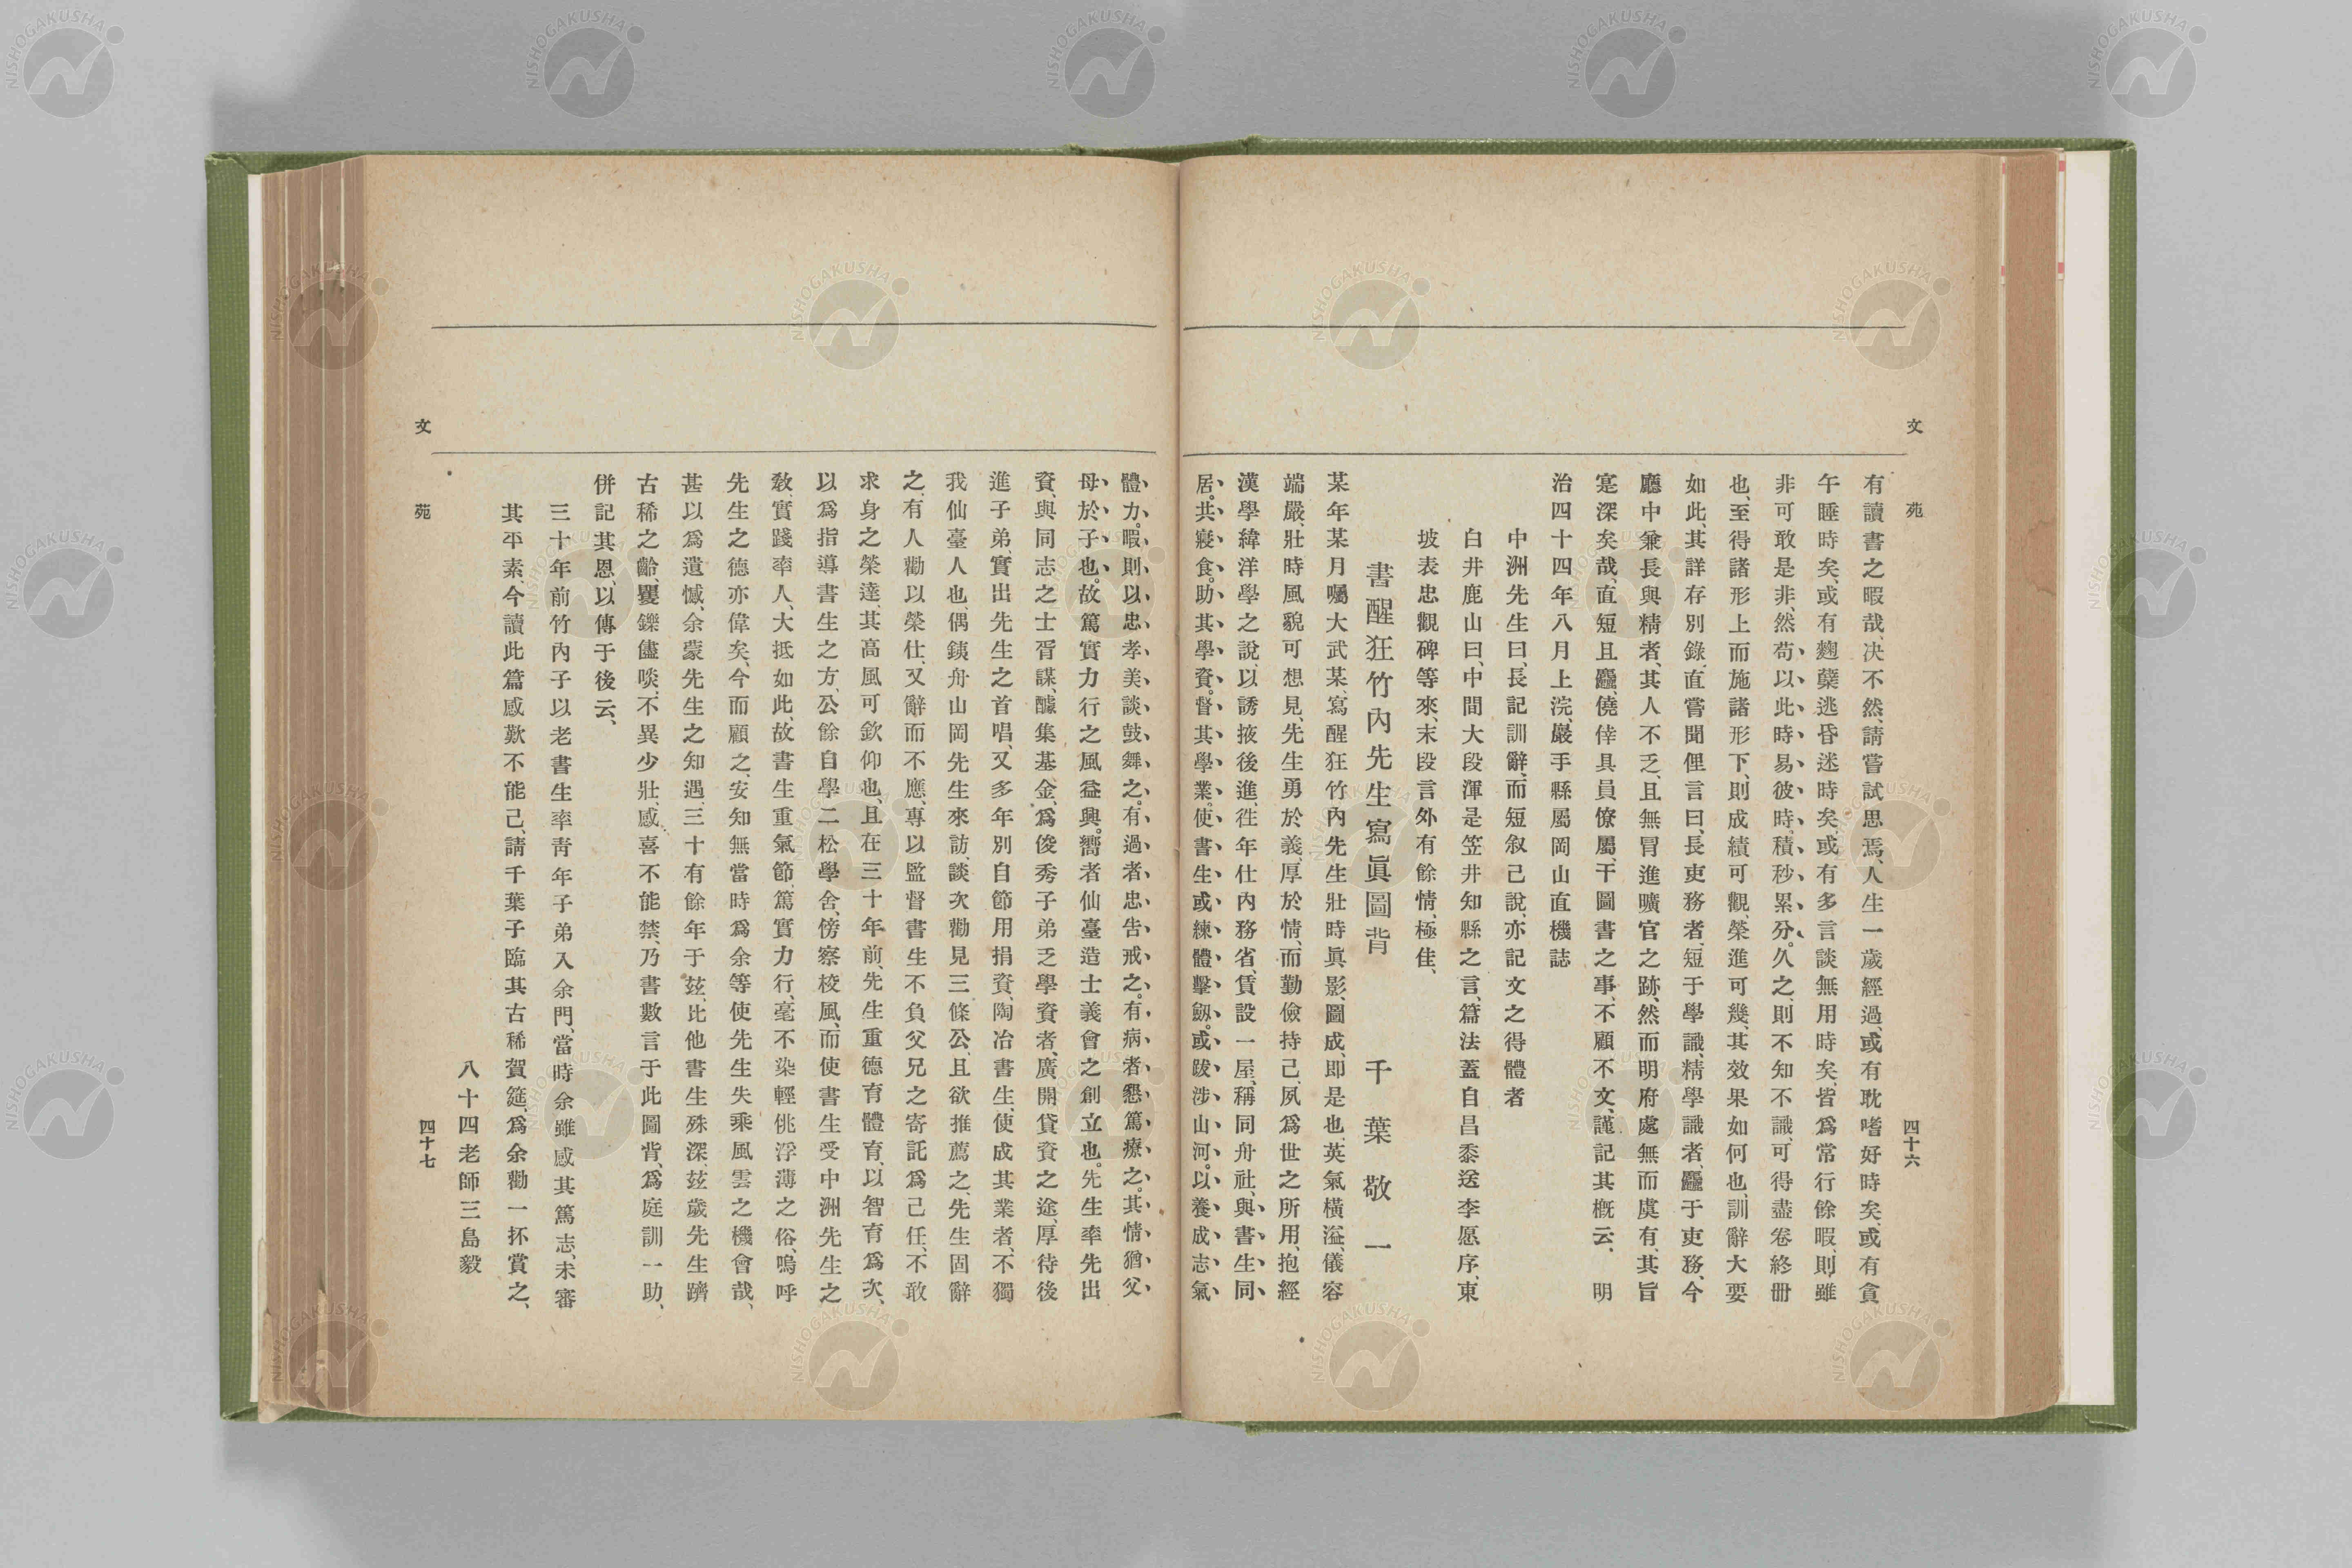 文苑
四十六
有讀書之暇哉、决不然、請嘗試思焉、人生一歲經過、或有耽嗜好時矣、或有貪
午睡時矣、或有麴蘗逃昏迷時矣、或有多言談無用時矣、皆爲常行餘暇、則雖
非可敢是非、然苟以此時易彼時、積秒累分、久之、則不知不識、可得盡卷終册
也、至得諸形上而施諸形下、則成績可觀、榮進可幾、其效果如何也、訓辭大要
如此、其詳存別錄、直嘗聞俚言曰、長吏務者、短于學識、精學識者、麤于吏務、今
廳中兼長與精者、其人不乏、且無冒進曠官之跡、然而明府處無而虞有、其旨
寔深矣哉、直短且麤、僥倖具員僚屬、干圖書之事、不顧不文、謹記其概云、明
治四十四年八月上浣、巖手縣屬岡山直機誌
中洲先生曰、長記訓辭、而短叙己說、亦記文之得體者
白井鹿山曰、中間大段渾是笠井知縣之言、篇法蓋自昌黍送李愿序、東
坡表忠觀碑等來、末段言外有餘情、極佳、
書醒狂竹內先生寫眞圖背
千葉敬一
某年某月囑大武某、寫醒狂竹內先生壯時眞影、圖成、卽是也、英氣橫溢、儀容
端嚴、壯時風貌可想見、先生勇於義、厚於情、而勤儉持己、夙爲世之所用、抱經
漢學緯洋學之說、以誘掖後進、徃年仕內務省、賃設一屋、稱同舟社、與書生同
居。共寢食。助其學資。督其學業。使書生或練體擊劔。或跋涉山河。以養成志氣
體力。暇則以忠孝美談鼓舞之。有過者忠吿戒之。有病者懇篤療之。其情猶父
母於子也。故篤實力行之風益興。嚮者仙臺造士義會之創立也。先生率先出
資、與同志之士胥謀、醵集基金、爲俊秀子弟乏學資者、廣開貸資之途、厚待後
進子弟、實出先生之首唱、又多年別自節用捐資、陶冶書生、使成其業者、不獨
我仙臺人也、偶鐵舟山岡先生來訪、談次勸見三條公、且欲推薦之、先生固辭
之、有人勸以榮仕、又辭而不應、專以監督書生不負父兄之寄託爲己任、不敢
求身之榮達、其高風可欽仰也、且在三十年前、先生重德育體育、以智育爲次、
以爲指導書生之方、公餘自學二松學舍、傍察校風、而使書生受中洲先生之
敎、實踐率人、大抵如此、故書生重氣節、篤實力行、毫不染輕佻浮薄之俗、嗚呼
先生之德亦偉矣、今而顧之、安知無當時爲余等使先生失乘風雲之機會哉、
甚以爲遺憾、余蒙先生之知遇、三十有餘年于玆、比他書生殊深、玆歲先生躋
古稀之齡、矍鑠儘啖、不異少壯、感喜不能禁、乃書數言于此圖背、爲庭訓一助、
併記其恩、以傳于後云、
三十年前竹內子以老書生率靑年子弟入余門、當時余雖感其篤志、未審
其平素、今讀此篇感歎不能已、請千葉子臨其古稀賀筵、爲余勸一抔賞之、
八十四老師三島毅
文苑
四十七